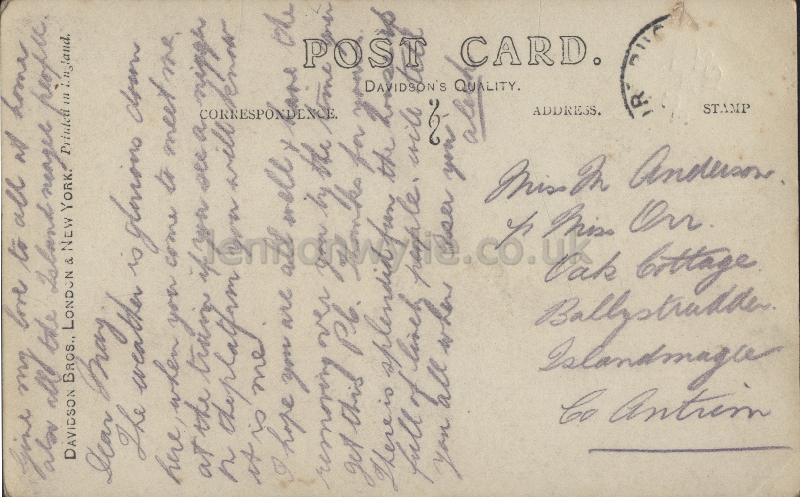 POST CARD.
DAVIDSON'S QUALITY.
CORRESPONDENCE.
ADDRESS.
STAMP
DAVIDSON BROS., LONDON & NEW YORK. Printed in England.
Dear May,
The weather is glorious down
here, when you come to meet me
at the train if you see a nigger
on the platform you will know
it is me.
I hope you are all well & have the
removing over you by the time you
get this P.C. Thanks for yours.
There is splendid fun, the house is
full of lively people. will tell
you all when I see you
Give my love to all at home
also all the Islandmagee people.
Miss M Anderson.
c/o Miss Orr.
Oak Cottage
Ballystrudder.
Islandmagee
Co Antrim
lennonwylie.co.uk